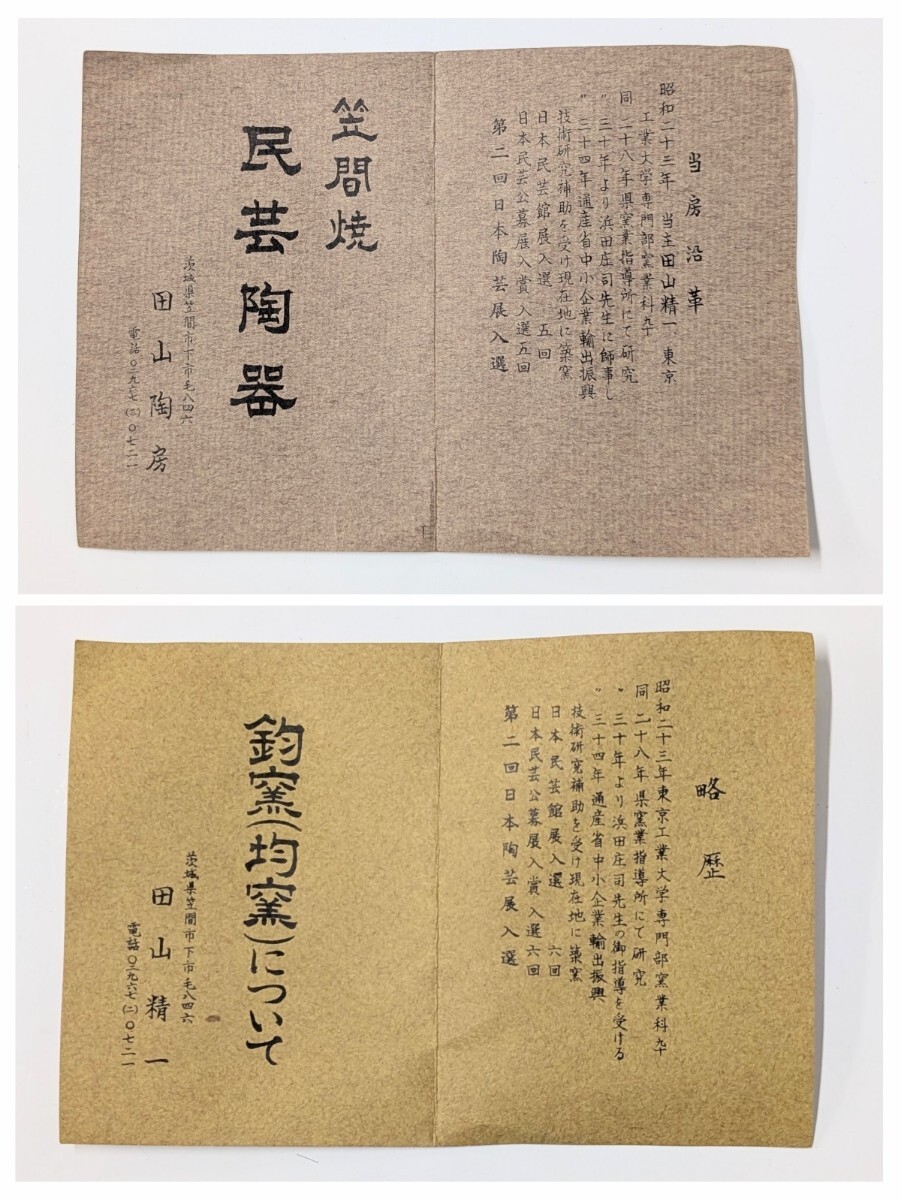 当房沿革
昭和二十三年　当主田山精一、東京
工業大学専門部窯業科卆
同　二十八年県窯業指導所にて研究
〃　三十年より浜田庄司先生に師事し
〃　三十四年通産省中小企業輸出振興
技術研究補助を受け現在地に築窯
日本民芸館展入選　五回
日本民芸公募展入賞　入選五回
第二回日本陶芸展入選
笠間焼
民芸陶器
茨城県笠間市下市毛八四六
田山陶房
電話〇二九六七(二)〇七二一
略歴
昭和二十三年東京工業大学専門部窯業科卆
同　二十八年県窯業指導所にて研究
〃　三十年より浜田庄司先生の御指導を受ける
〃　三十四年通産省中小企業輸出振興
技術研究補助を受け現在地に築窯
日本民芸館展入選　六回
日本民芸公募展入賞　入選六回
第二回日本陶芸展入選
鈞窯(均窯)について
茨城県笠間市下市毛八四六
田山精一
電話〇二九六七(二)〇七二一